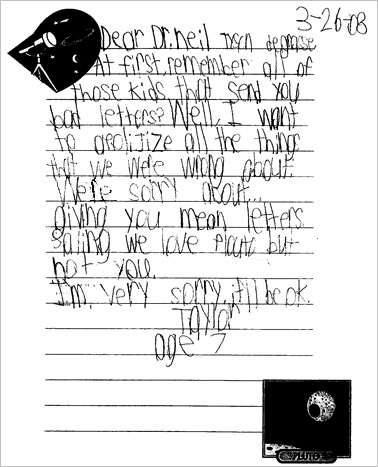 3-26-08
Dear Dr. Neil Tyson degrasse
At first, remember all of
those kids that sent you
bad letters? Well, I want
to apolijize all the things
that we were wrong about.
We're sorry about...
giving you mean letters
saiing we love Pluto but
not you.
I'm very sorry, it'll be ok.
Taylor
age 7
PLUTO